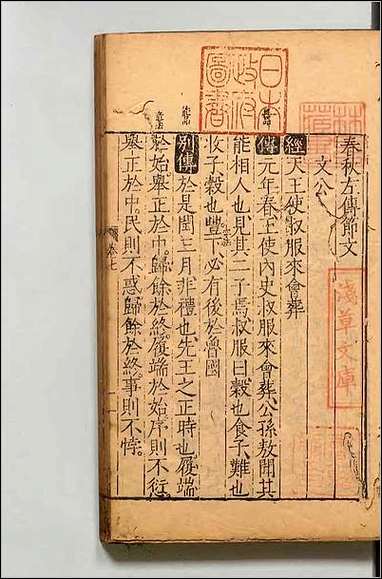 春秋左傳節文
文公
經 天王使叔服來會葬
傳 元年春王使內史叔服來會葬公孫敖聞其
能相人也見其二子焉叔服曰穀也食子難也
收子穀也豐下必有後於魯國
別傳 於是閏三月非禮也先王之正時也履端
於始舉正於中歸餘於終履端於始序則不愆
舉正於中民則不惑歸餘於終事則不悖
卷七
日本
政府
圖書
淺草文庫